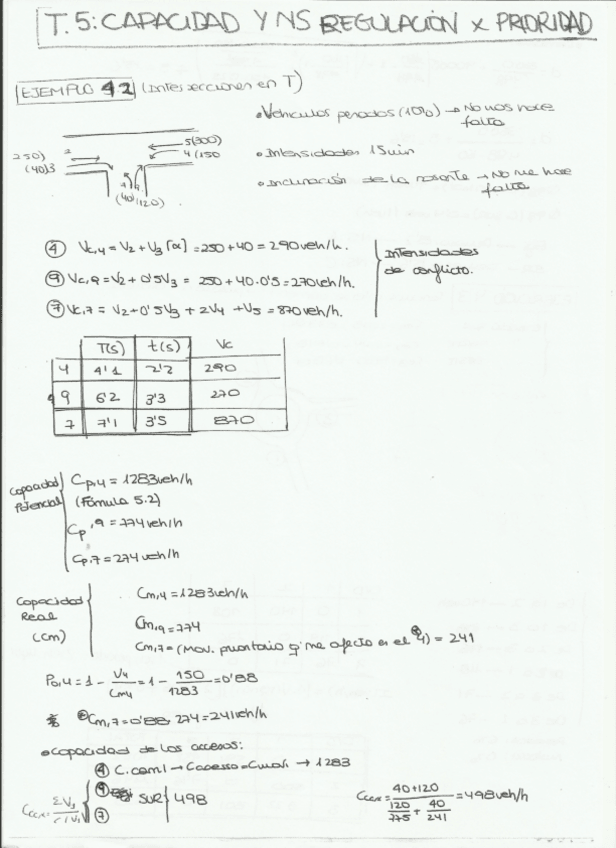 T.5: CAPACIDAD Y NS REGULACIÓN x PRIORIDAD
EJEMPLO 4.2 (Intersecciones en T)
• Vehiculos pesados (10%) → No nos hace falta
250) 2
(40)3
5(300)
4 (150
7 9
(40) (120)
• Intensidades 15min
• Inclinación de la rasante → No me hace falta
④ Vc,4 = V2 + V3 [α] = 250 + 40 = 290 veh/h.
⑨ Vc,9 = V2 + 0'5V3 = 250 + 40·0'5 = 270 veh/h.
⑦ Vc,7 = V2 + 0'5V3 + 2V4 + V5 = 870 veh/h.
Intensidades de conflicto.
T(s) t(s) Vc
4 4'1 2'2 290
9 6'2 3'3 270
7 7'1 3'5 870
Capacidad Potencial
Cp,4 = 1283 veh/h
(Fórmula 5.2)
Cp,9 = 774 veh/h
Cp,7 = 274 veh/h
Capacidad Real (Cm)
Cm,4 = 1283 veh/h
Cm,9 = 774
Cm,7 = (Mov. prioritario q' me afecta es el 4) = 241
Po,4 = 1 - V4/Cm4 = 1 - 150/1283 = 0'88
Cm,7 = 0'88· 274 = 241 veh/h
• Capacidad de los accesos:
④ C. → Cacceso = → 1283
⑨ SUR 498
⑦
= (40 + 120)/(120/775 + 40/241) = 498 veh/h